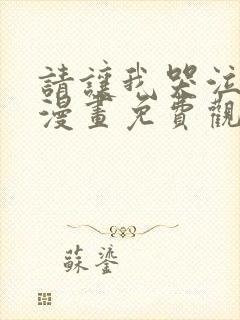 請讓我哭泣
漫畫免費觀
蘇鎏